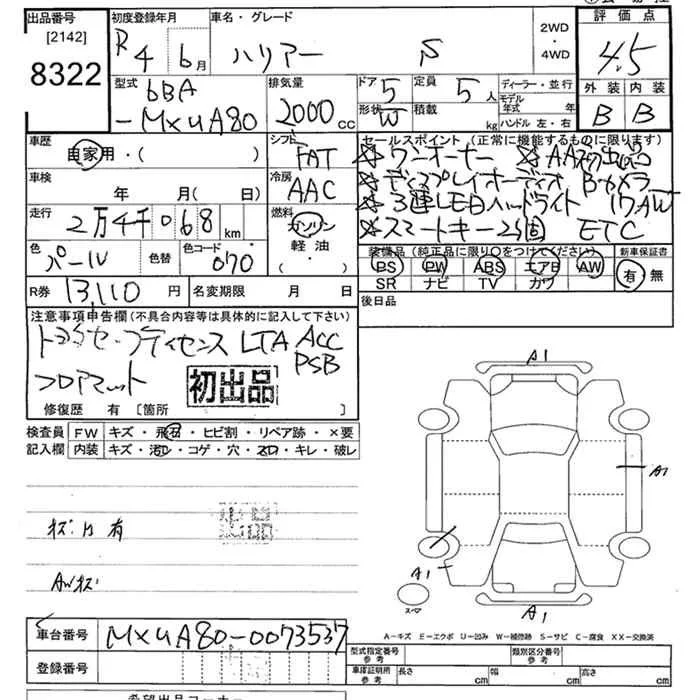 出品番号 初度登録年月 車名・グレード 2WD・4WD 評価点
[2142] R4 6月 ハリアー S 4.5
8322 型式 排気量 ドア 5 定員 5人 ディーラー・並行 外装 内装
6BA 2000cc 形状 W 積載 kg モデル年式 年 B B
-MXUA80 ハンドル 左・右
車歴 シフト セールスポイント (正常に機能するものに限ります)
自家用・( ) FAT ☆ワンオーナー ☆AAA初出品
車検 冷房 ☆ディスプレイオーディオ Bカメラ
年 月( 日) AAC ☆3連LEDヘッドライト 17AW
走行 燃料 ☆スマートキー2個 ETC
2万4千068km ガソリン 装備品 (純正品に限り〇をつけてください) 新車保証書
色 色替 色コード 軽油 PS PW ABS エアB AW 有 無
パール 070 ・( ) SR ナビ TV カワ
R券 13,110円 名変期限 月 日 後日品
注意事項申告欄 (不具合内容等は具体的に記入して下さい)
トヨタセーフティセンス LTA ACC
PSB
フロアマット 初出品
修復歴 有 [箇所 ]
検査員 FW キズ・飛石・ヒビ割・リペア跡・×要
記入欄 内装 キズ・汚レ・コゲ・穴・スレ・キレ・破レ
A1
A1
キズ・凹有 出品
A1
AWキズ
スペア
A1
A-キズ E-エクボ U-凹み W-補修跡 S-サビ C-腐食 XX-交換済
車台番号 MXUA80-0073537
型式指定番号 参考 類別区分番号 参考
登録番号 車庫証明用 参考 長さ cm 幅 cm 高さ cm
希望出品コーナー